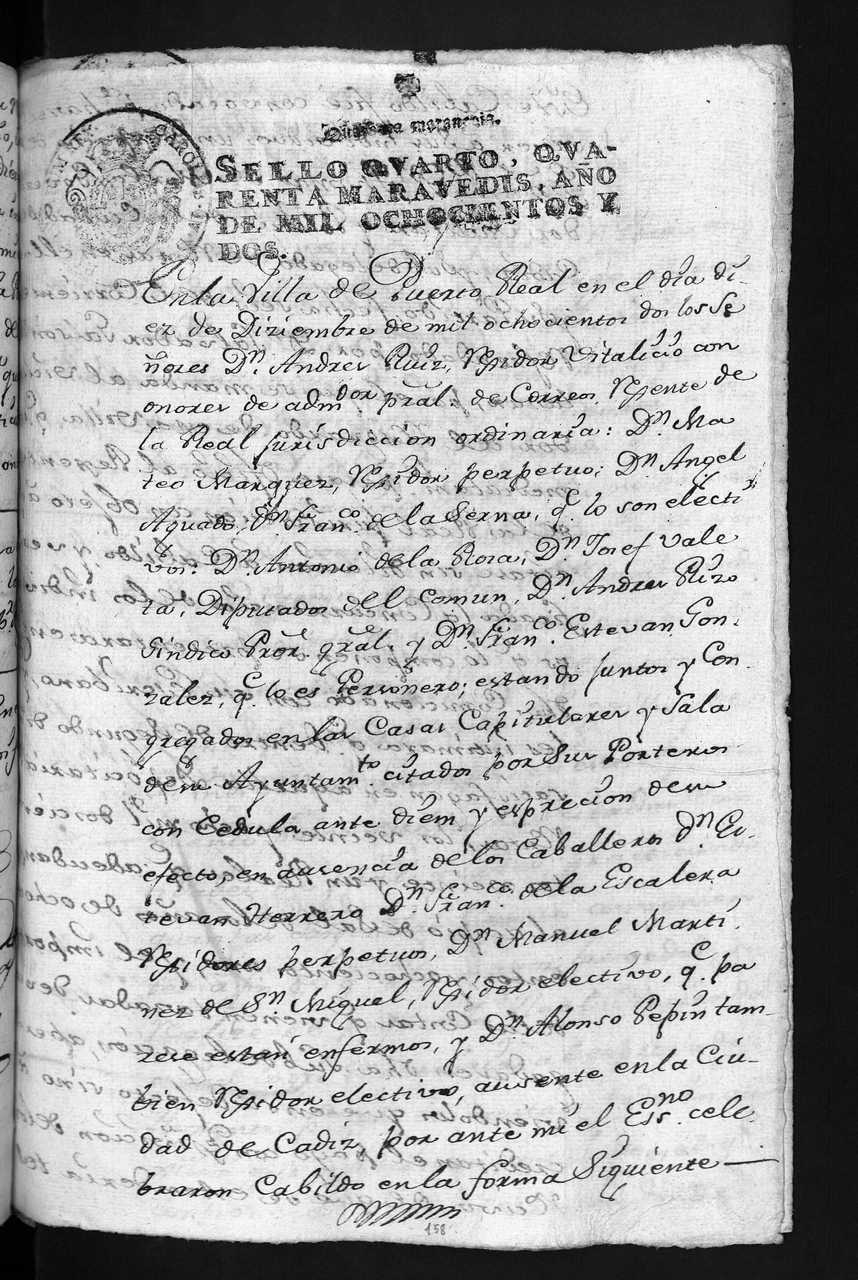 Quarenta maravedis.
SELLO QVARTO, QVA-
RENTA MARAVEDIS, AÑO
DE MIL OCHOCIENTOS Y
DOS.
En la Villa de Puerto Real en el dia di-
ez de Diziembre de mil ochocientos dos los Se
ñores Dn. Andres Ruiz, Rexidor Vitalicio con
onores de admdor. pral. de Correos, Rexente de
la Real jurisdiccion ordinaria: Dn. Ma
teo Marquez, Rexidor perpetuo; Dn. Angel
Aguado, Dn. Franco. de la Serna, qe. lo son electi
vos: Dn. Antonio de la Rosa, Dn. Josef Vale
ta, Diputados del Comun, Dn. Andres Rizo
Sindico Pror. gral., y Dn. Franco. Estevan Gon-
zalez, qe. lo es Personero; estando juntos y Con
gregados en las Casas Capitulares y Sala
de su Ayuntamto. citados por sus Porteros
con Cedula ante diem y esprecion de su
efecto, en ausencia de los Caballeros Dn. Es-
tevan Herrero Dn. Franco. de la Escalera
Rexidores perpetuos, Dn. Manuel Marti-
nez de Sn. Miguel, Rexidor electivo, qe. pa
rece estan enfermos, y Dn. Alonso Pepin tam-
bien Rexidor electivo, ausente en la Ciu-
dad de Cadiz, por ante mi el Essno. cele-
braron Cabildo en la forma Siguiente
158